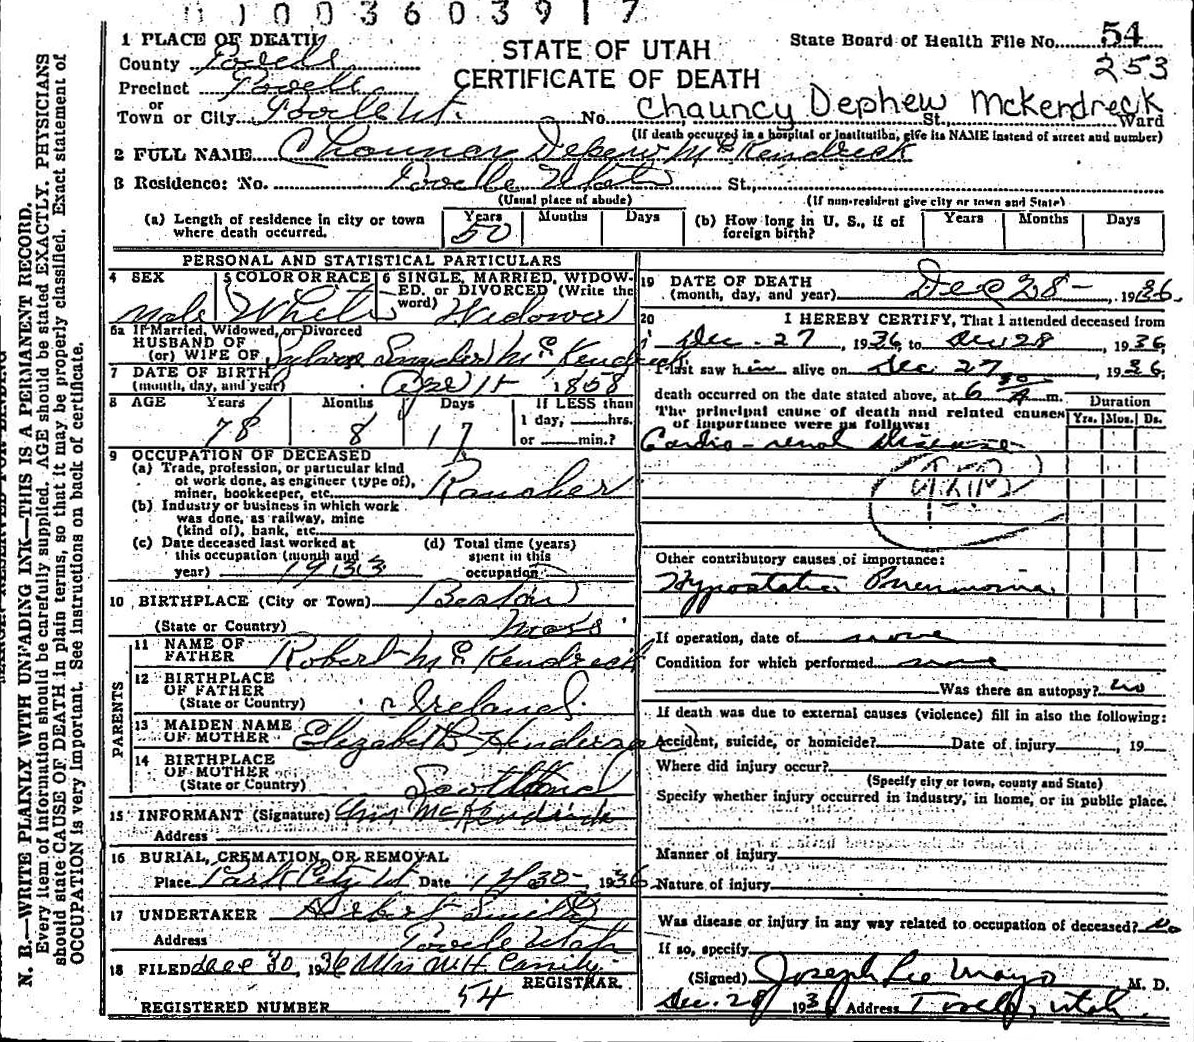 0 1 0 0 3 6 0 3 9 1 7
STATE OF UTAH
CERTIFICATE OF DEATH
State Board of Health File No. 54
253
1 PLACE OF DEATH
County Tooele
Precinct Tooele
or
Town or City Tooele Ut. No. St., Ward
Chauncy Dephew McKendreck
(If death occurred in a hospital or institution, give its NAME instead of street and number)
2 FULL NAME Chauncy Depew Mc Kendreck
3 Residence: No. Tooele Utah St.,
(Usual place of abode) (If non-resident give city or town and State)
(a) Length of residence in city or town where death occurred. Years 50 Months Days
(b) How long in U. S., if of foreign birth? Years Months Days
PERSONAL AND STATISTICAL PARTICULARS
4 SEX Male
5 COLOR OR RACE White
6 SINGLE, MARRIED, WIDOWED, or DIVORCED (Write the word) Widower
6a If Married, Widowed, or Divorced
HUSBAND OF
(or) WIFE OF Mc Kendreck
7 DATE OF BIRTH
(month, day, and year) Apr 11 1858
8 AGE Years 78 Months 8 Days 17 If LESS than
1 day, hrs.
or min.?
9 OCCUPATION OF DECEASED
(a) Trade, profession, or particular kind
of work done, as engineer (type of),
miner, bookkeeper, etc. Rancher
(b) Industry or business in which work
was done, as railway, mine
(kind of), bank, etc.
(c) Date deceased last worked at
this occupation (month and
year) 1933
(d) Total time (years)
spent in this
occupation
10 BIRTHPLACE (City or Town) Boston
(State or Country) Mass
PARENTS
11 NAME OF
FATHER Robert Mc Kendreck
12 BIRTHPLACE
OF FATHER
(State or Country) Ireland
13 MAIDEN NAME
OF MOTHER Elizabeth Henderson
14 BIRTHPLACE
OF MOTHER
(State or Country) Scotland
15 INFORMANT (Signature) McKendrick
Address
16 BURIAL, CREMATION, OR REMOVAL
Place Park City Ut Date 12/30- 1936
17 UNDERTAKER
Address Tooele Utah
18 FILED Dec 30, 1936 Mrs
REGISTRAR.
REGISTERED NUMBER 54
19 DATE OF DEATH
(month, day, and year) Dec 28-, 1936
20 I HEREBY CERTIFY, That I attended deceased from
Dec. 27, 1936, to Dec. 28, 1936,
I last saw him alive on Dec. 27, 1936,
death occurred on the date stated above, at 6 30 A m.
The principal cause of death and related causes
of importance were as follows:
Duration
Yrs. Mos. Ds.
Cardio-renal disease
Other contributory causes of importance:
Hypostatic Pneumonia
If operation, date of none
Condition for which performed none
Was there an autopsy? no
If death was due to external causes (violence) fill in also the following:
Accident, suicide, or homicide? Date of injury , 19
Where did injury occur?
(Specify city or town, county and State)
Specify whether injury occurred in industry, in home, or in public place.
Manner of injury
Nature of injury
Was disease or injury in any way related to occupation of deceased? No
If so, specify
(Signed) Joseph Lee Mayo M. D.
Dec. 28, 1936 Address Tooele, Utah.
N. B.—WRITE PLAINLY WITH UNFADING INK—THIS IS A PERMANENT RECORD.
Every item of information should be carefully supplied. AGE should be stated EXACTLY. PHYSICIANS
should state CAUSE OF DEATH in plain terms, so that it may be properly classified. Exact statement of
OCCUPATION is very important. See instructions on back of certificate.